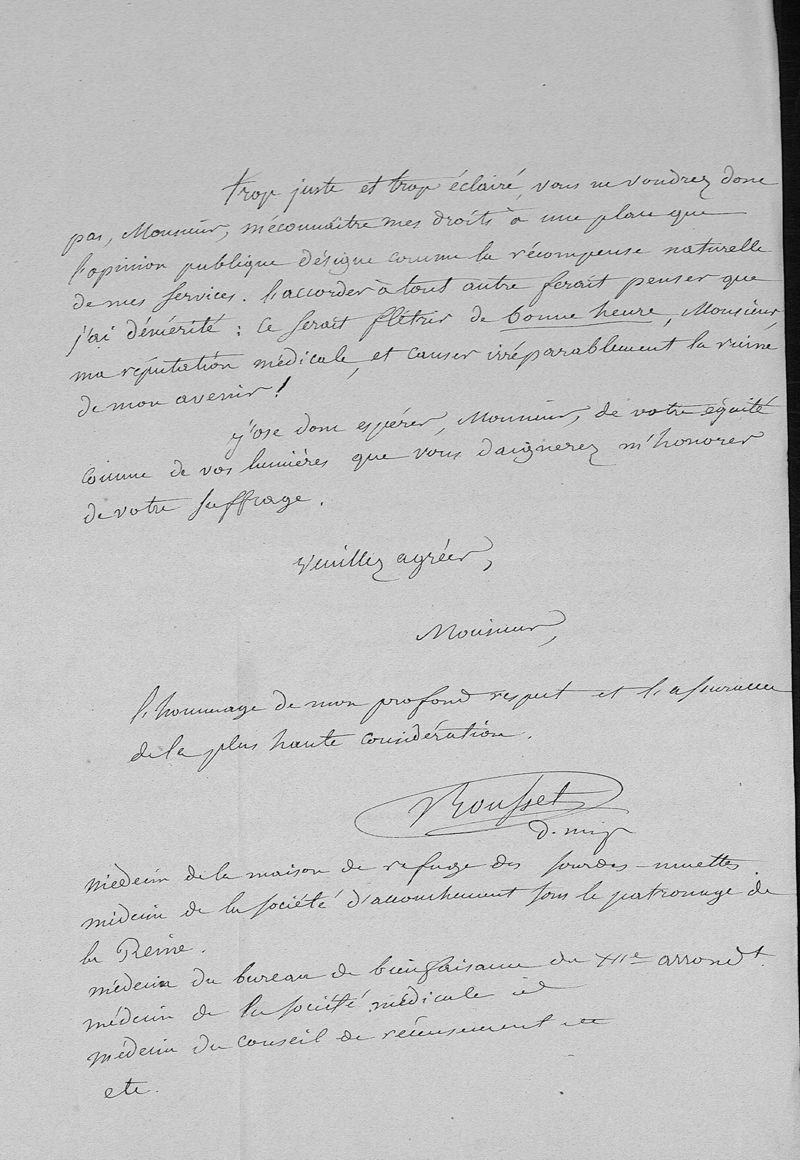 trop juste et trop éclairé, vous ne voudrez donc
pas, Monsieur, méconnaître mes droits à une place que
l'opinion publique désigne comme la récompense naturelle
de mes services. l'accorder à tout autre ferait penser que
j'ai démérité : ce serait flétrir de bonne heure, Monsieur,
ma réputation médicale, et causer irréparablement la ruine
de mon avenir !
j'ose donc espérer, Monsieur, de votre équité
comme de vos lumières que vous daignerez m'honorer
de votre suffrage.
Veuillez agréer,
Monsieur,
l'hommage de mon profond respect et l'assurance
de la plus haute considération.
Rousset
d. m. p.
médecin de la maison de refuge des sourdes-muettes
médecin de la société d'accouchement sous le patronage de
la Reine.
médecin du bureau de bienfaisance du XIIe arrondt.
médecin de la société médicale id
médecin du conseil de recensement
etc.